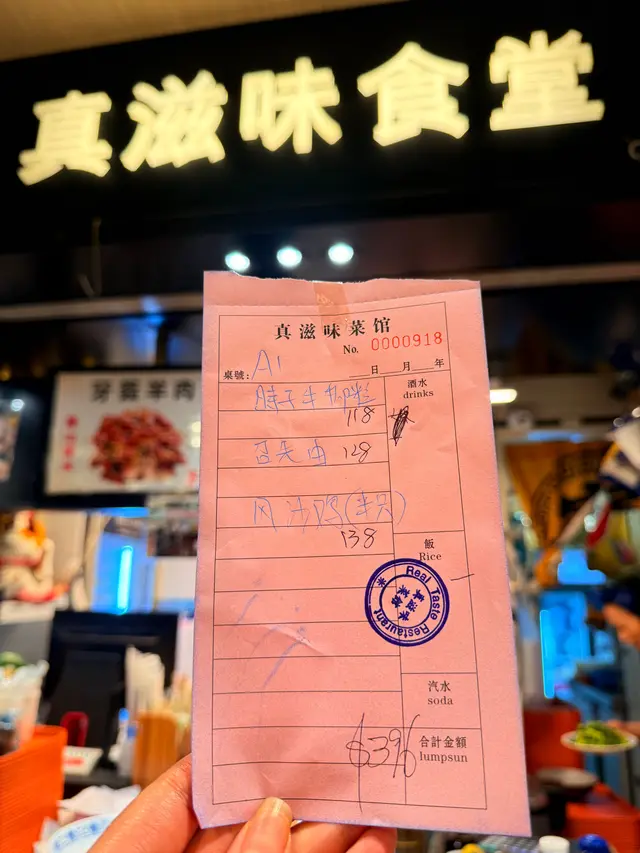 真滋味食堂
牙籤羊肉
真滋味菜馆
No. 0000918
桌號: A1
日 月 年
酒水
drinks
118
128
风沙鸡(半只)
138
飯
Rice
Real Taste Restaurant
汽水
soda
合計金額
lumpsun